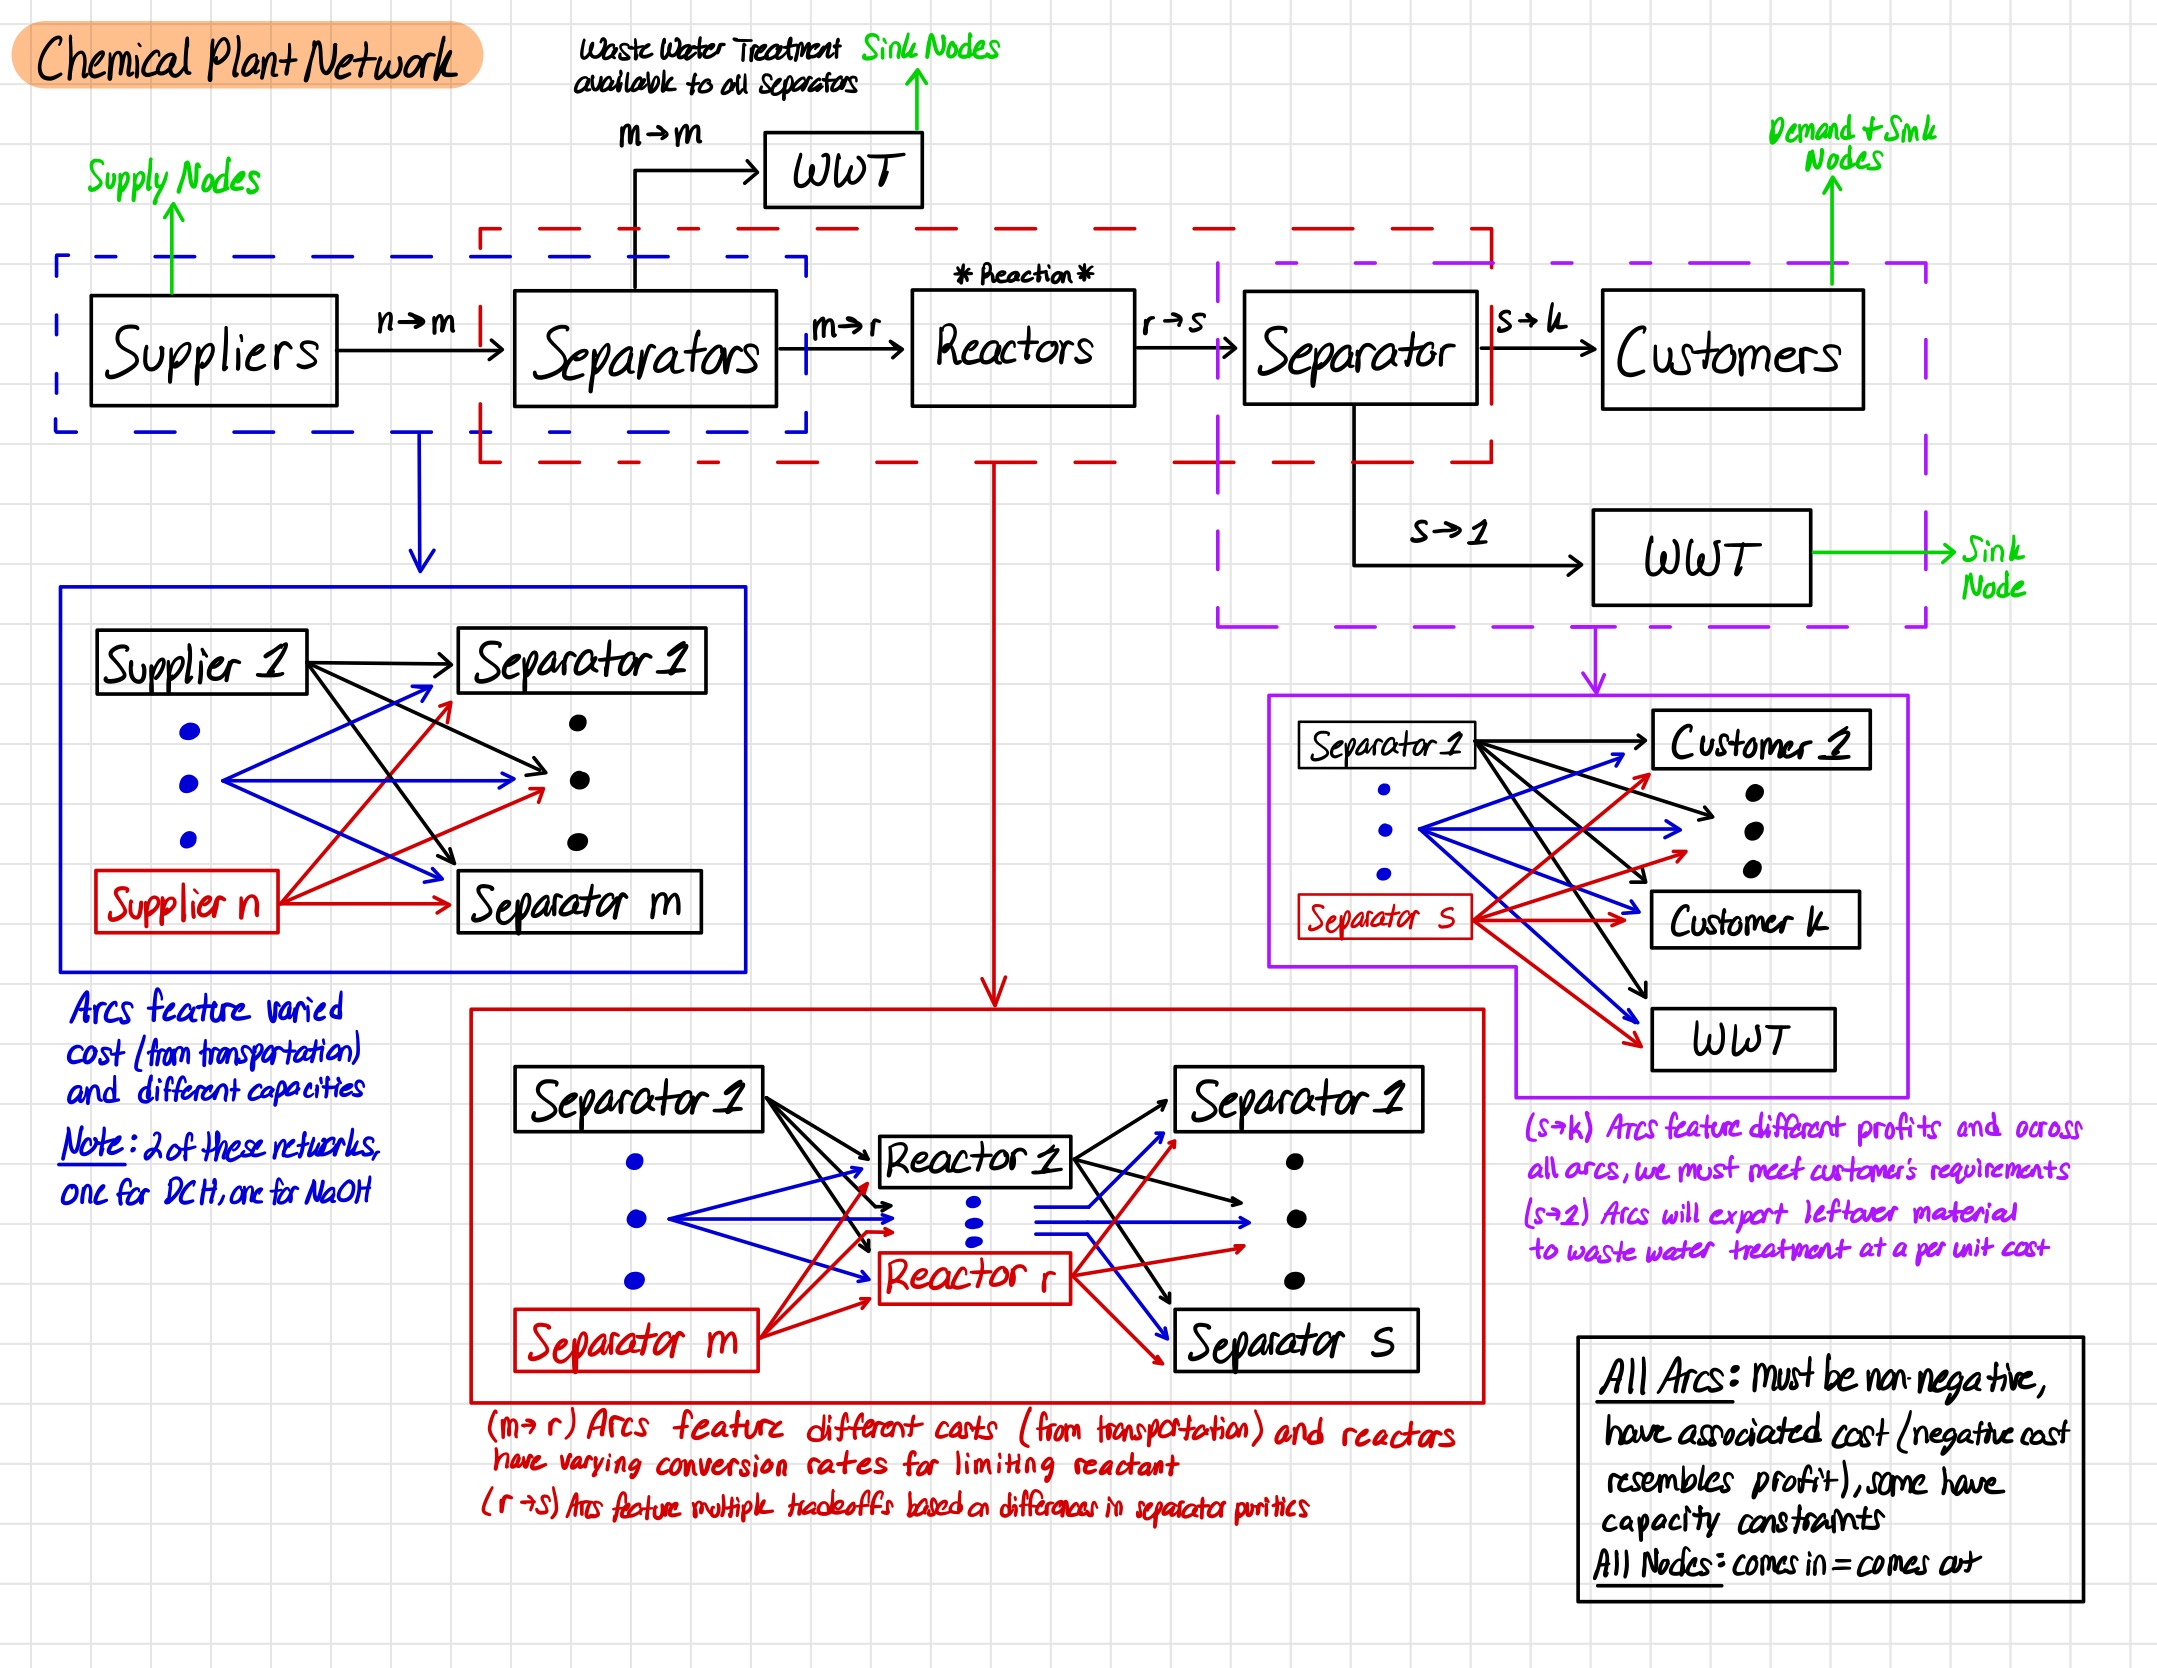 Chemical Plant Network
Waste Water Treatment
available to all separators
Sink Nodes
m→m
WWT
Supply Nodes
Demand + Sink
Nodes
Suppliers
n→m
Separators
m→r
* Reaction *
Reactors
r→s
Separator
s→k
Customers
s→1
WWT
Sink
Node
Supplier 1
Separator 1
Supplier n
Separator m
Arcs feature varied
cost (from transportation)
and different capacities
Note: 2 of these networks,
one for DCH, one for NaOH
Separator 1
Customer 1
Separator s
Customer k
WWT
(s→k) Arcs feature different profits and across
all arcs, we must meet customer's requirements
(s→1) Arcs will export leftover material
to waste water treatment at a per unit cost
Separator 1
Reactor 1
Separator 1
Reactor r
Separator m
Separator s
(m→r) Arcs feature different costs (from transportation) and reactors
have varying conversion rates for limiting reactant
(r→s) Arcs feature multiple tradeoffs based on differences in separator purities
All Arcs: must be non-negative,
have associated cost (negative cost
resembles profit), some have
capacity constraints
All Nodes: comes in = comes out